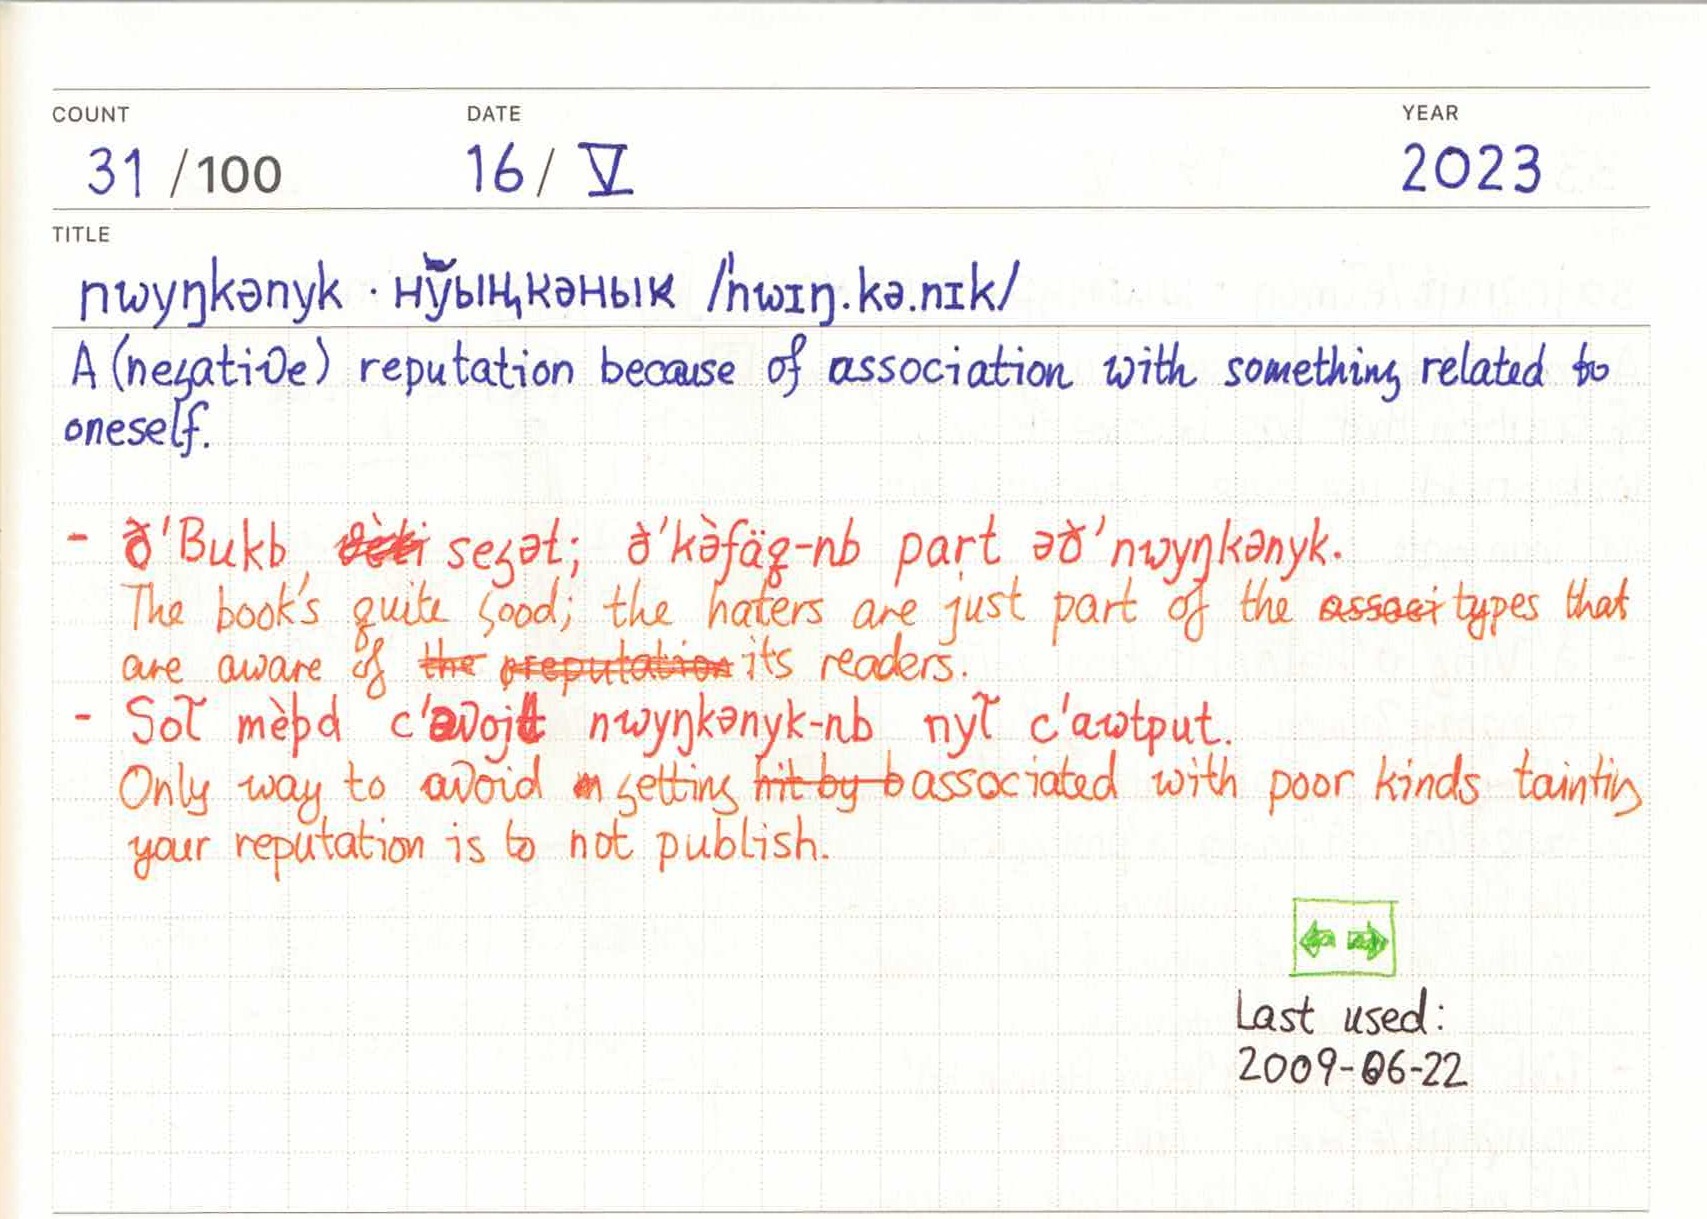 COUNT DATE YEAR
31 /100 16/ V 2023
TITLE
nwyŋkənyk · нўыңкәнык /ˈnwɪŋ.kə.nɪk/
A (negative) reputation because of association with something related to
oneself.
- ð'Bukb, seȝət; ð'kə̀fäq-nb part əð'nwyŋkənyk.
The book's quite good; the haters are just part of the associ types that
are aware of the preputation its readers.
- Sol̃ mèþd c'avojt nwyŋkənyk-nb nyl̃ c'awtput.
Only way to avoid getting hit by b associated with poor kinds tainting
your reputation is to not publish.
Last used:
2009-06-22